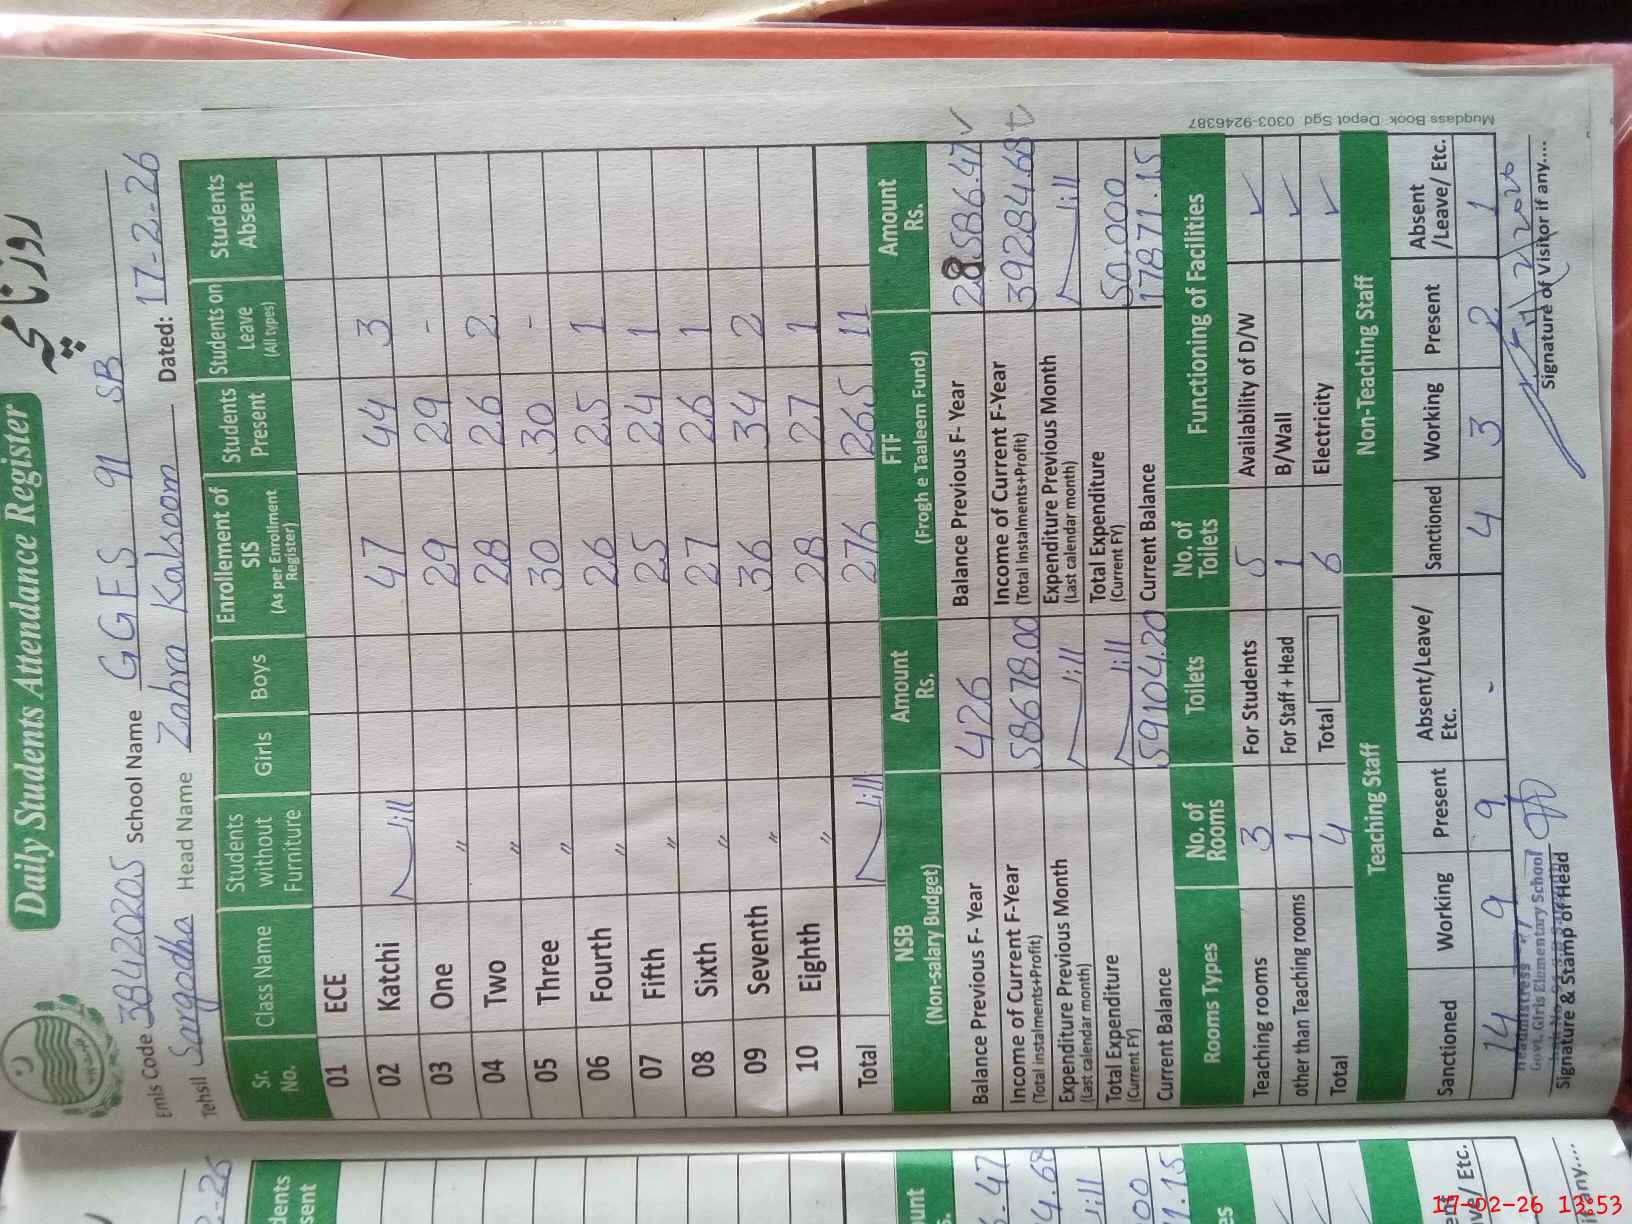 Daily Students Attendance Register
روزنامچہ
Emis Code 38420205 School Name GGES 91 SB
Tehsil Sargodha Head Name Zahra Kalsoom Dated: 17-2-26
Sr. No. Class Name Students without Furniture Girls Boys Enrollement of SIS (As per Enrollment Register) Students Present Students on Leave (All types) Students Absent
01 ECE
02 Katchi Nill 47 44 3
03 One " 29 29 -
04 Two " 28 26 2
05 Three " 30 30 -
06 Fourth " 26 25 1
07 Fifth " 25 24 1
08 Sixth " 27 26 1
09 Seventh " 36 34 2
10 Eighth " 28 27 1
Total Nill 276 265 11
NSB (Non-salary Budget) Amount Rs. FTF (Frogh e Taaleem Fund) Amount Rs.
Balance Previous F- Year 426 Balance Previous F- Year 28586.47
Income of Current F-Year (Total instalments+Profit) 58678.00 Income of Current F-Year (Total instalments+Profit) 39284.68
Expenditure Previous Month (Last calendar month) Nill Expenditure Previous Month (Last calendar month) Nill
Total Expenditure (Current FY) Nill Total Expenditure (Current FY) 50.000
Current Balance 59104.20 Current Balance 17871.15
Rooms Types No. of Rooms Toilets No. of Toilets Functioning of Facilities
Teaching rooms 3 For Students 5 Availability of D/W ✓
other than Teaching rooms 1 For Staff + Head 1 B/Wall ✓
Total 4 Total 6 Electricity ✓
Teaching Staff Non-Teaching Staff
Sanctioned Working Present Absent/Leave/ Etc. Sanctioned Working Present Absent /Leave/ Etc.
14 9 9 - 4 3 2 1
Headmistress
Govt. Girls Elementary School
Signature & Stamp of Head Signature of Visitor if any....
Muqdass Book Depot Sgd 0303-9246387
17-02-26 13:53